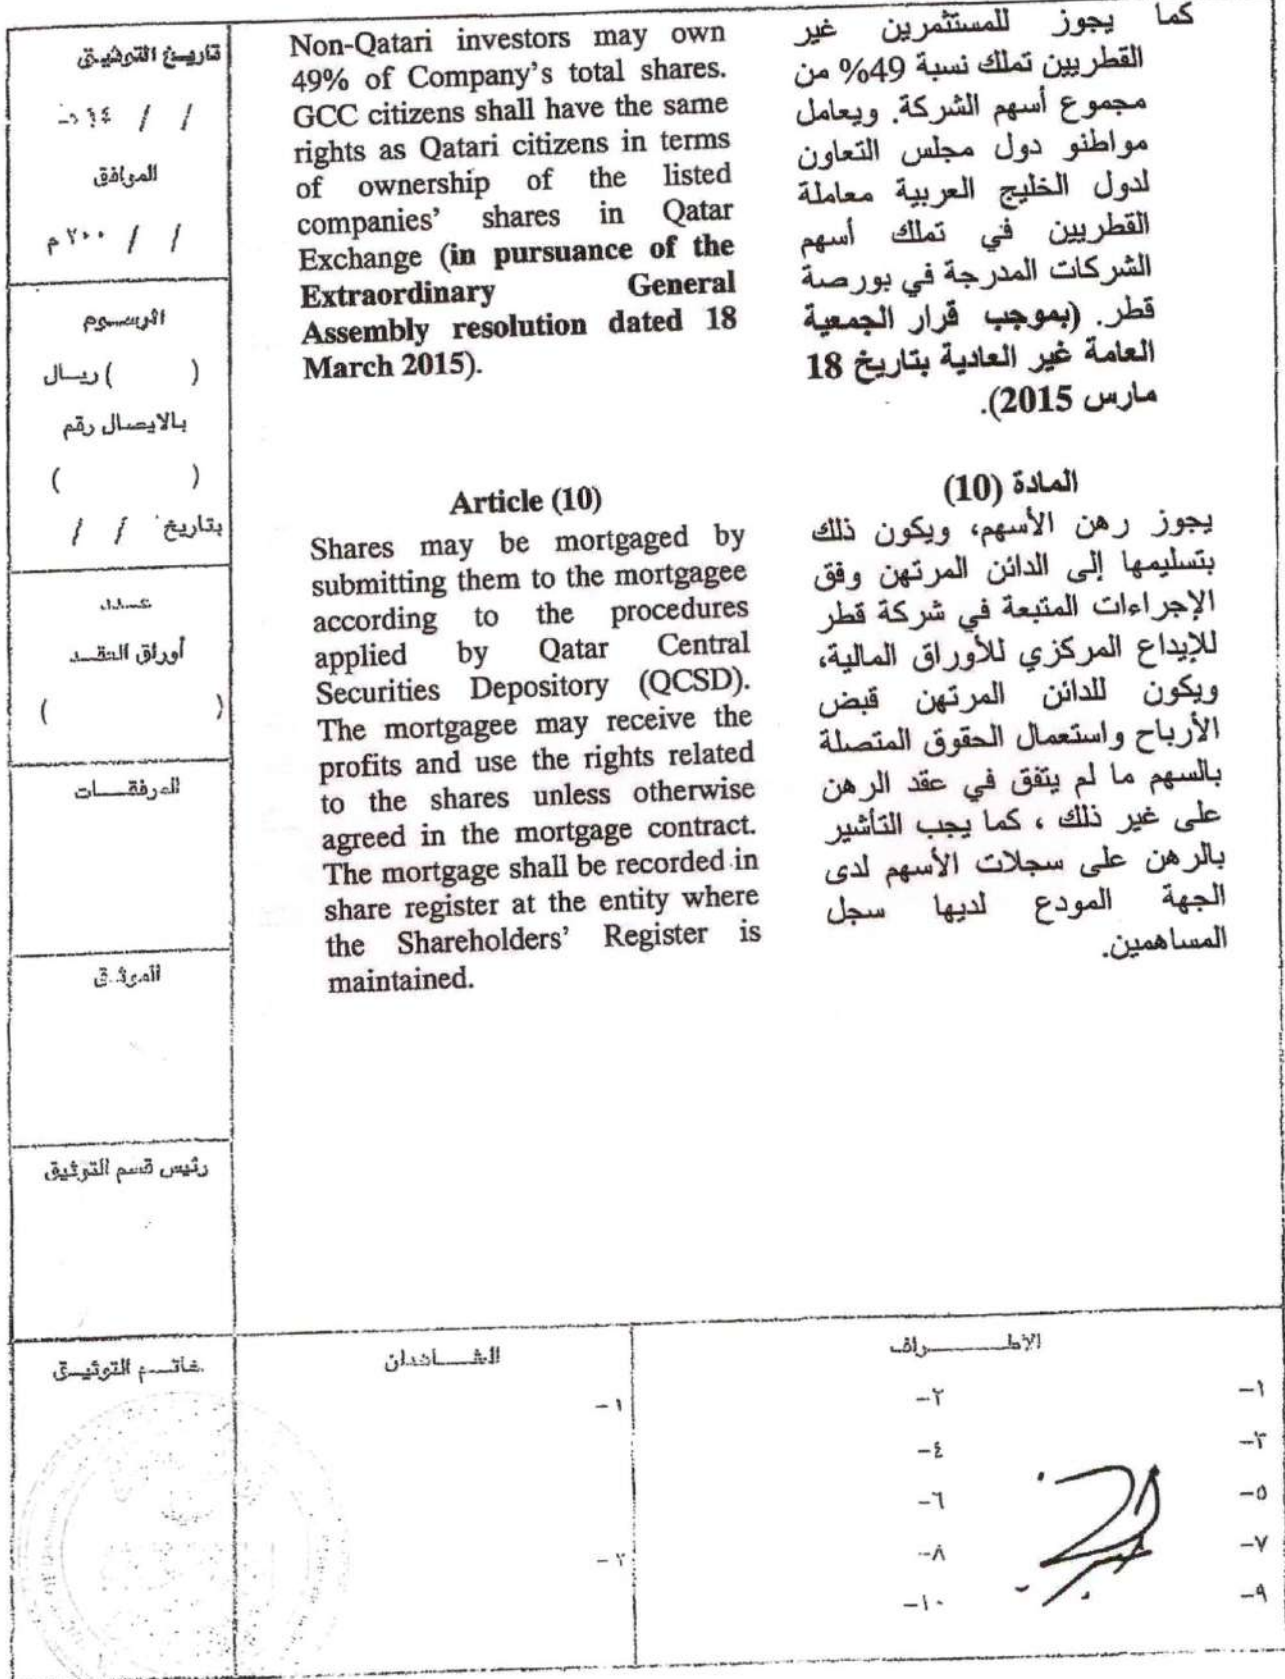 تاريخ التوثيق
/ / ١٤ هـ
الموافق
/ / ٢٠٠ م
الرسوم
( ) ريال
بالايصال رقم
( )
بتاريخ / /
عدد
أوراق العقد
( )
المرفقات
الموثق
رئيس قسم التوثيق
Non-Qatari investors may own
49% of Company's total shares.
GCC citizens shall have the same
rights as Qatari citizens in terms
of ownership of the listed
companies' shares in Qatar
Exchange (in pursuance of the
Extraordinary General
Assembly resolution dated 18
March 2015).
Article (10)
Shares may be mortgaged by
submitting them to the mortgagee
according to the procedures
applied by Qatar Central
Securities Depository (QCSD).
The mortgagee may receive the
profits and use the rights related
to the shares unless otherwise
agreed in the mortgage contract.
The mortgage shall be recorded in
share register at the entity where
the Shareholders' Register is
maintained.
كما يجوز للمستثمرين غير
القطريين تملك نسبة 49% من
مجموع أسهم الشركة. ويعامل
مواطنو دول مجلس التعاون
لدول الخليج العربية معاملة
القطريين في تملك أسهم
الشركات المدرجة في بورصة
قطر. (بموجب قرار الجمعية
العامة غير العادية بتاريخ 18
مارس 2015).
المادة (10)
يجوز رهن الأسهم، ويكون ذلك
بتسليمها إلى الدائن المرتهن وفق
الإجراءات المتبعة في شركة قطر
للإيداع المركزي للأوراق المالية،
ويكون للدائن المرتهن قبض
الأرباح واستعمال الحقوق المتصلة
بالسهم ما لم يتفق في عقد الرهن
على غير ذلك ، كما يجب التأشير
بالرهن على سجلات الأسهم لدى
الجهة المودع لديها سجل
المساهمين.
خاتم التوثيق
الشاهدان
١-
٢-
الاطراف
١-
٢-
٣-
٤-
٥-
٦-
٧-
٨-
٩-
١٠-